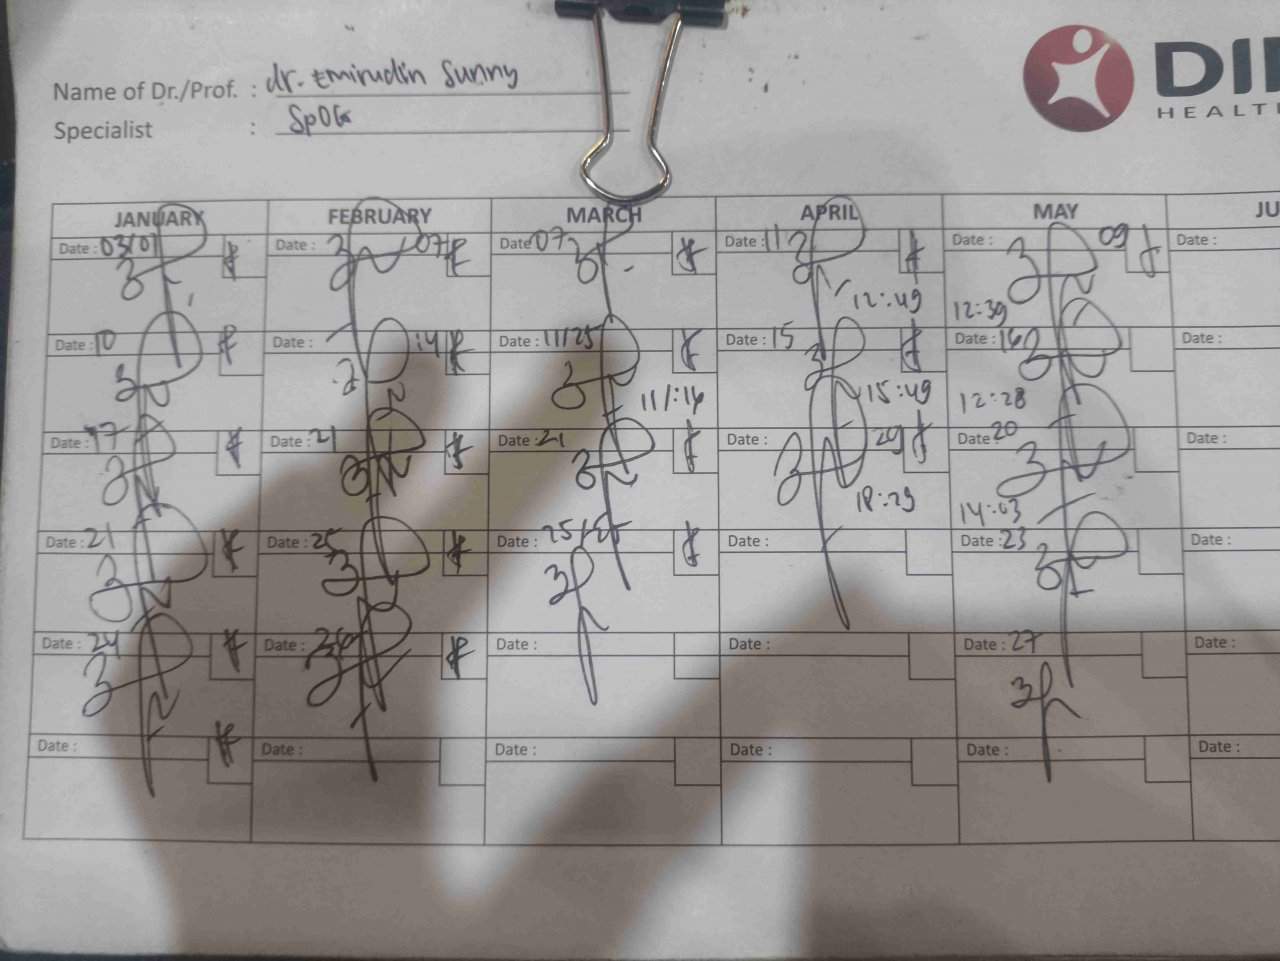 Name of Dr./Prof. : dr. Emirudin Sunny
Specialist : SpOG
DI
HEALT
JANUARY FEBRUARY MARCH APRIL MAY JU
Date : 03/01 Date : 07 Date 07 Date : 11 Date : 09 Date :
12:49 12:39
Date : 10 Date : 14 Date : 11/25 Date : 15 Date : 16 Date :
11/:14 15:49 12:28
Date : 17 Date : 21 Date : 21 Date : 29 Date 20 Date :
18:29 14:03
Date : 21 Date : 25 Date : 25/ Date : Date : 23 Date :
Date : 24 Date : Date : Date : Date : 27 Date :
Date : Date : Date : Date : Date : Date :